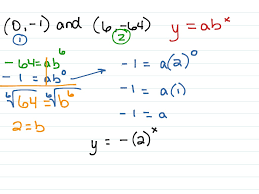 (0, -1) and (6, -64) y = abˣ
① ②
-64 = ab⁶
-1 = ab⁰
⁶√64 = ⁶√b⁶
2 = b
-1 = a(2)⁰
-1 = a(1)
-1 = a
y = -(2)ˣ